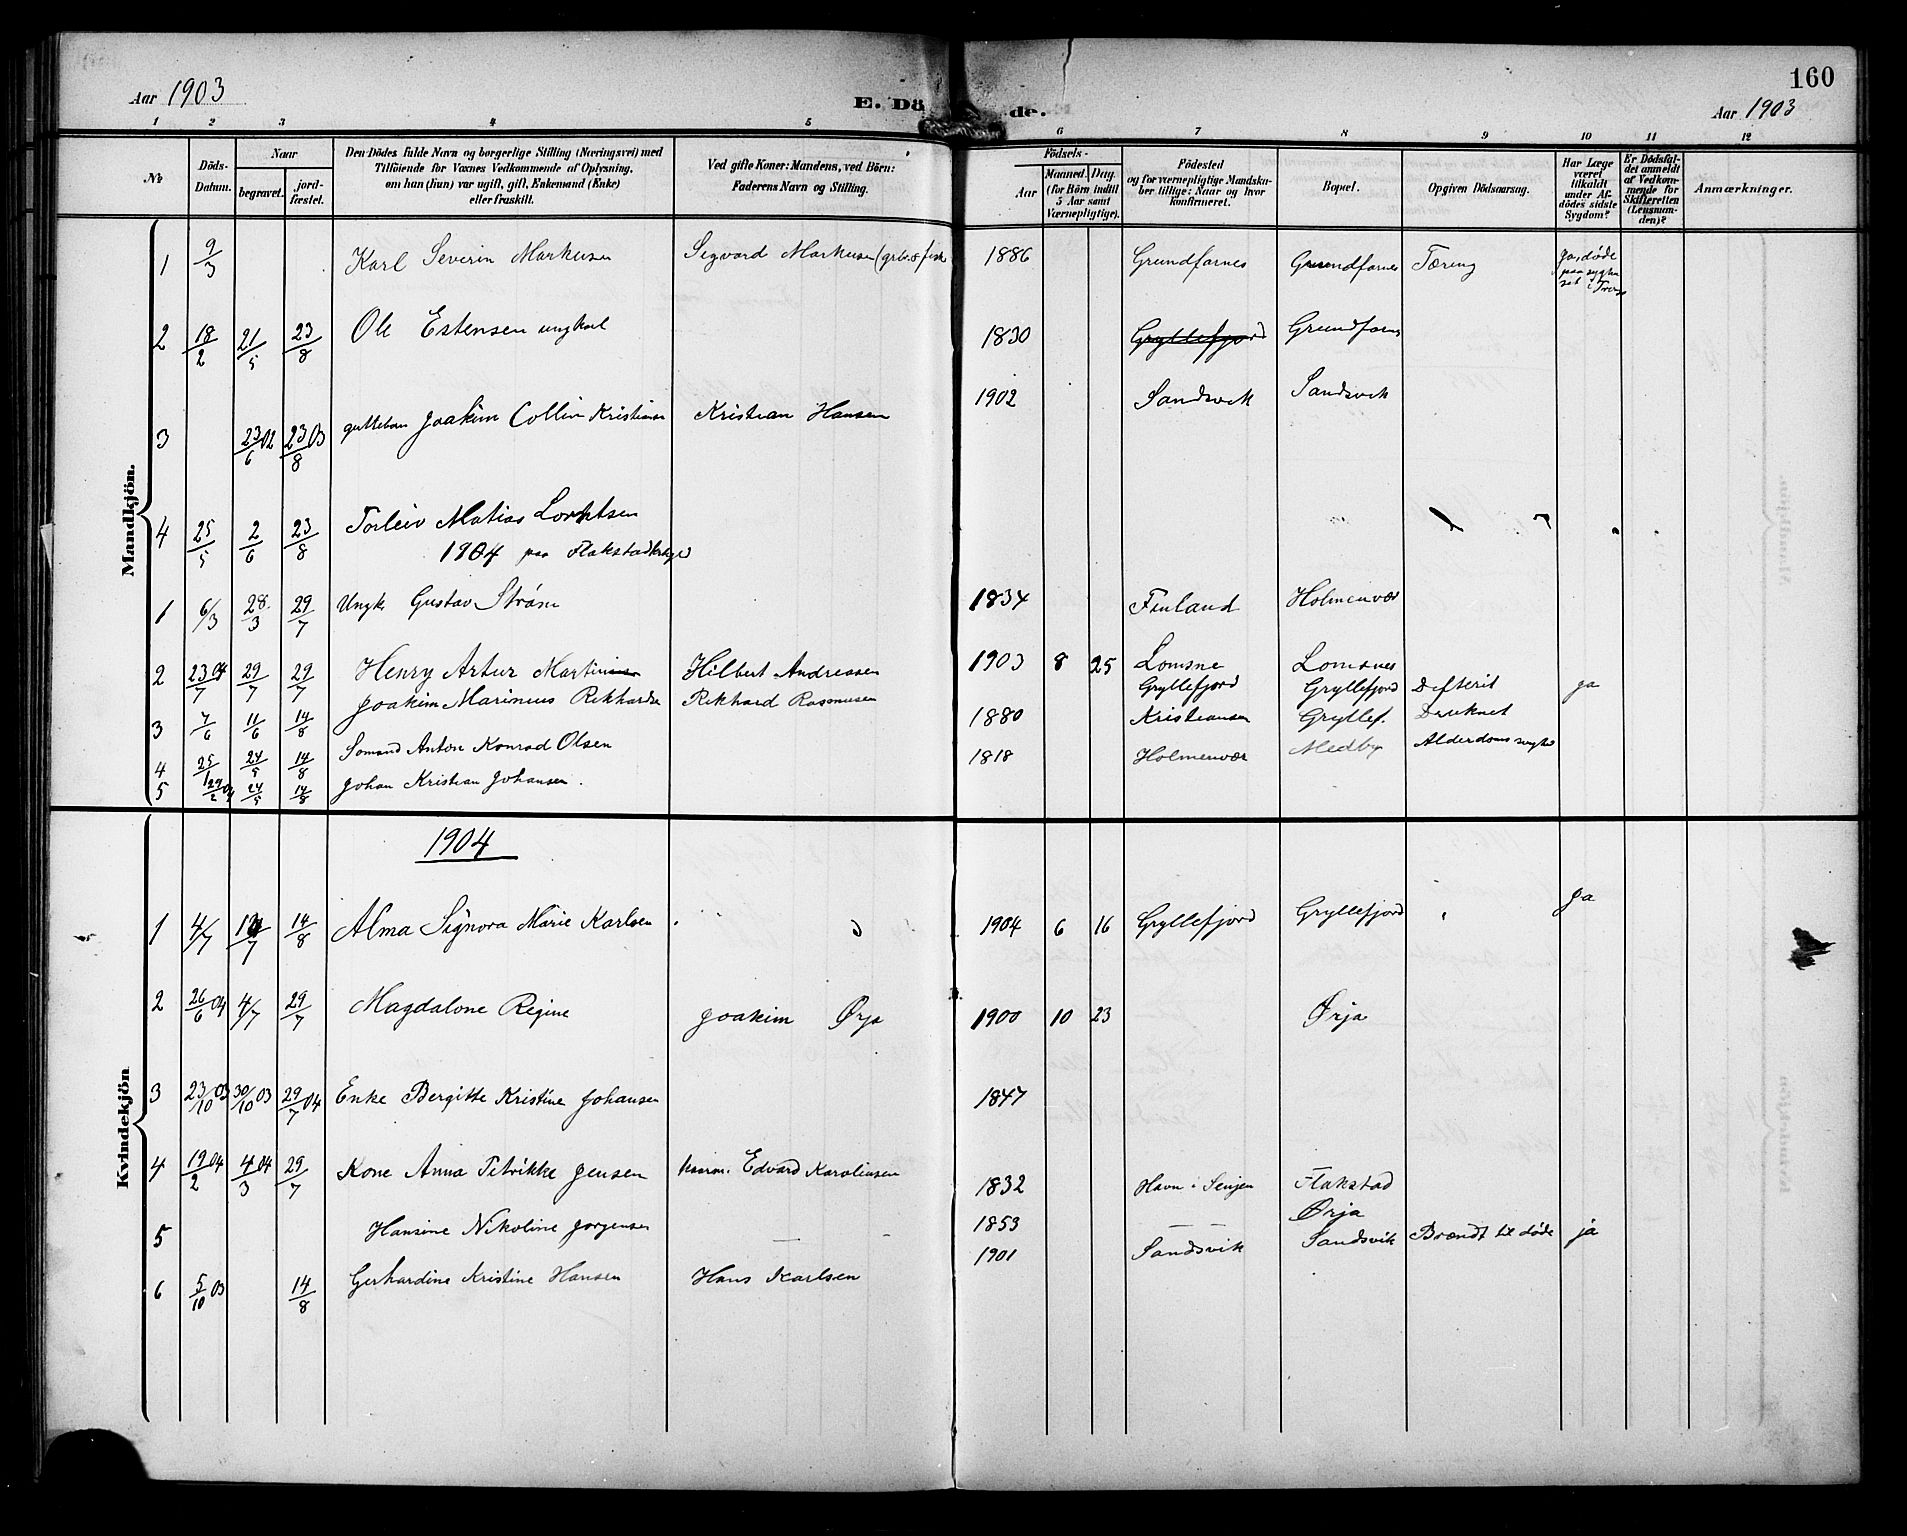 Aar 1903
E. Dö de.
160
Aar 1903
1 2 3 4 5 6 7 8 9 10 11 12
No
Döds-Datum.
Naar
begravet.
jord-fæstet.
Den Dödes fulde Navn og borgerlige Stilling (Næringsvei) med
Tilföiende for Voxnes Vedkommende af Oplysning,
om han (hun) var ugift, gift, Enkemand (Enke)
eller fraskilt.
Ved gifte Koner: Mandens, ved Börn:
Faderens Navn og Stilling.
Födsels-
Aar
Maaned. Dag.
(for Börn indtil
5 Aar samt
Værnepligtige).
Födested
og for værnepligtige Mandska-
ber tillige: Naar og hvor
konfirmeret.
Bopæl.
Opgiven Dödsaarsag.
Har Læge
været
tilkaldt
under Af-
dödes sidste
Sygdom?
Er Dödsfal-
det anmeldt
af Vedkom-
mende for
Skifteretten
(Lensman-
den)?
Anmærkninger.
Mandkjön.
1 9/3 Karl Severin Markusen Sigvard Markusen 1886 Grundfarnes Grundfarnes Tæring ja, døde
paa
2 18/2 21/5 23/8 Ole Estensen ungkarl 1830 Gryllefjord Grundfarnes
3 23/6 02 23/8 03 guttebarn Joakim Collin Kristiansen Kristian Hansen 1902 Sandsvik Sandsvik
4 25/5 2/6 23/8 Torleiv Matias Lorntsen
1904 paa
1 6/3 28/3 29/7 Ungk. Gustav Strøm 1834 Finland Holmenvær
2 23/7 04 29/7 29/7 Henry Artur Martin Hilbert Andreassen 1903 8 25 Lomsne Lomsnes
3 7/6 11/6 14/8 Joakim Marinius Rikhardsen Rikhard Rasmusen 1880 Gryllefjord Gryllefjord Defterit ja
4 25/1 24/5 14/8 Sømand Anton Konrad Olsen 1818 Kristiansen Gryllef. Druknet
5 29/2 04 24/5 14/8 Johan Kristian Johansen. Holmenvær Medby Alderdoms
1904
Kvindekjön
1 4/7 /7 14/8 Alma Signora Marie Karlsen 1904 6 16 Gryllefjord Gryllefjord ja
2 26/6 04 4/7 29/7 Magdalone Regine Joakim Ørja 1900 10 23 Ørja
3 23/10 03 30/10 03 29/7 04 Enke Bergitte Kristine Johansen 1847
4 19/2 04 4/3 04 29/7 Kone Anna Petrikke Jensen Edvard Karoliusen 1832 Havn i Senjen Flakstad
5 Hansine Nikoline Jørgensen — - 1853 — — Ørja
6 5/10 03 14/8 Gerhardine Kristine Hansen Hans Karlsen 1901 Sandsvik Sandsvik Brændt til døde ja